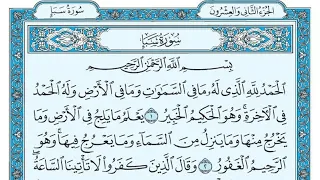 الجزء الثاني والعشرون
سورة سبإ
سورة سبإ
بسم الله الرحمن الرحيم
الحمد لله الذي له ما في السموات وما في الأرض وله الحمد
في الآخرة وهو الحكيم الخبير ١ يعلم ما يلج في الأرض وما
يخرج منها وما ينزل من السماء وما يعرج فيها وهو
الرحيم الغفور ٢ وقال الذين كفروا لا تأتينا الساعة